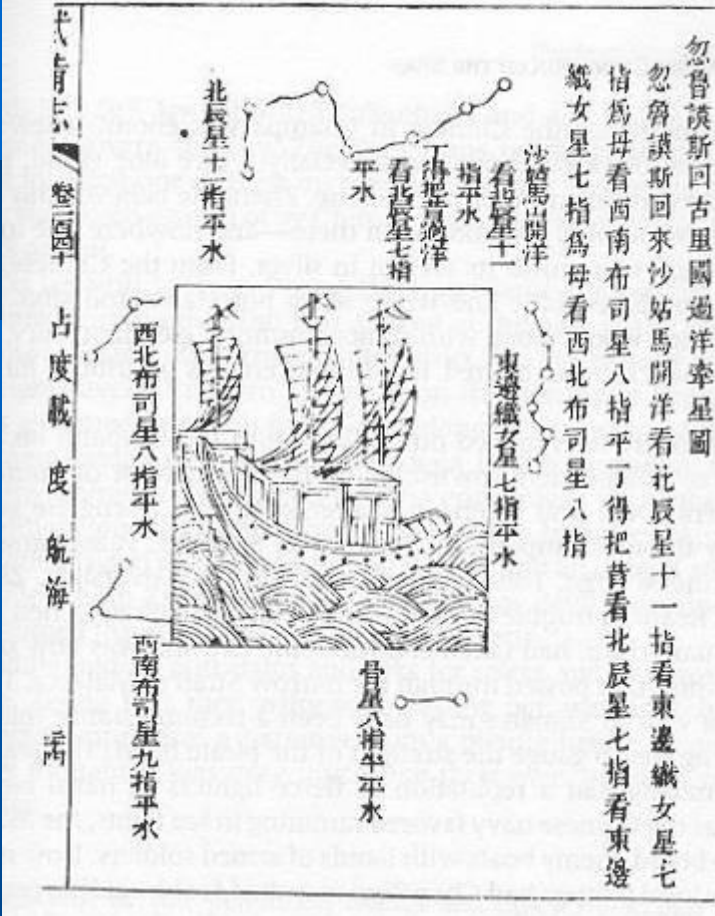 忽魯謨斯回古里國過洋牽星圖
忽魯謨斯回來沙姑馬開洋看北辰星十一指看東邊織女星七
指爲母看西南布司星八指平丁得把昔看北辰星七指看東邊
織女星七指爲母看西北布司星八指
沙姑馬山開洋
看北辰星十一
指平水
丁得把昔過洋
看北辰星七指
平水
北辰星十一指平水
東邊織女星七指平水
西北布司星八指平水
西南布司星九指平水
骨星八指半平水
武備志
卷二百四十
占度載
度
航海